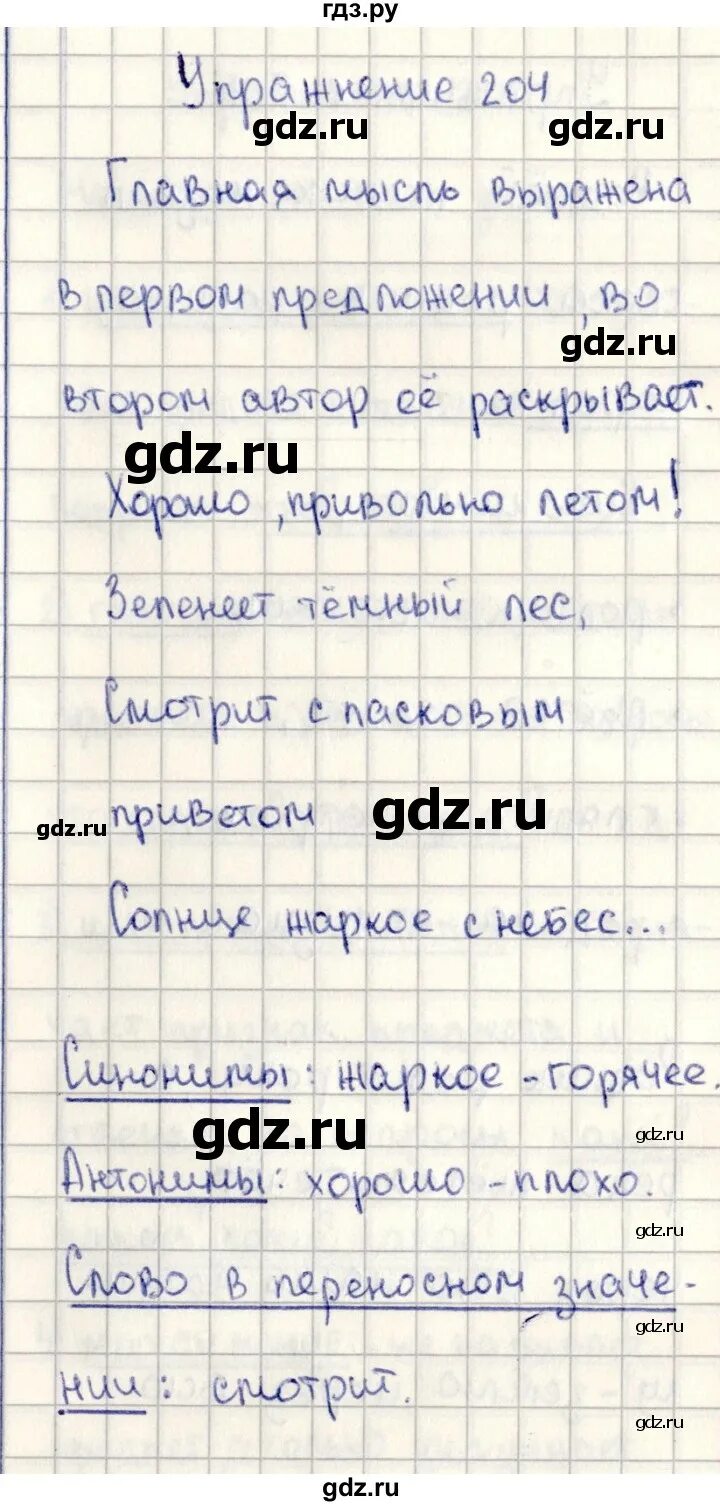 гдз.ру
Упражнение 204
gdz.ru gdz.ru
Главная мысль выражена
в первом предложении, во
gdz.ru
втором автор её раскрывает.
gdz.ru
Хорошо, привольно летом!
Зеленеет тёмный лес,
Смотрит с ласковым
gdz.ru приветом gdz.ru
Солнце жаркое с небес...
Синонимы: жаркое - горячее.
gdz.ru gdz.ru
Антонимы: хорошо - плохо.
gdz.ru
Слово в переносном значе-
gdz.ru
нии: смотрит.
gdz.ru
gdz.ru